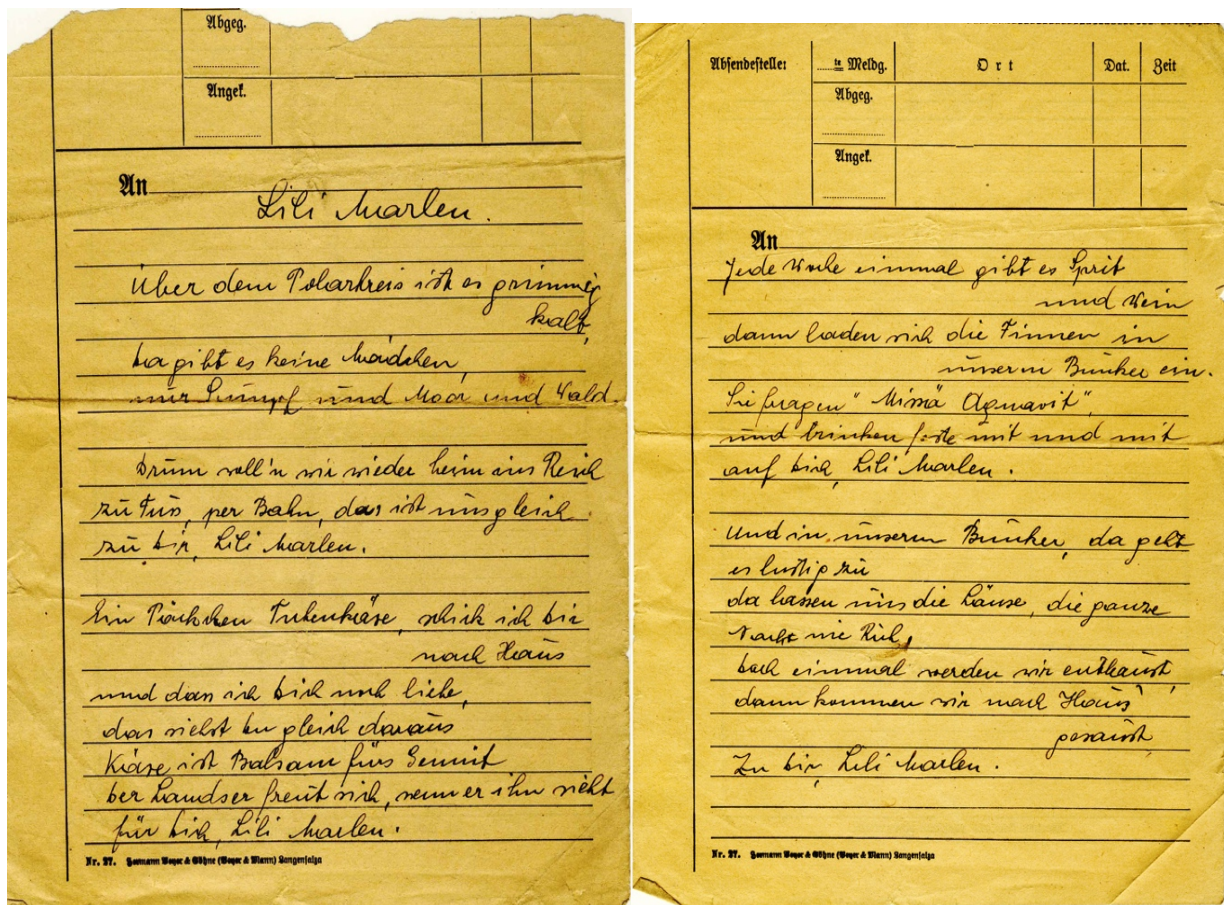 Abgeg.
Angek.
An
Lili Marlen.
Über dem Polarkreis ist es grimmig
kalt,
da gibt es keine Mädchen,
nur Sumpf und Moor und Wald.
Drum woll'n wir wieder heim ins Reich
zu Fus, per Bahn, das ist uns gleich
zu dir, Lili Marlen.
Ein Päckchen Tubenkäse, schick ich dir
nach Haus
und das ich dich noch liebe,
das siehst du gleich daraus
Käse ist Balsam fürs Gemüt
der Landser freut sich, wenn er ihn sieht
für dich, Lili Marlen.
Nr. 27. Hermann Beyer & Söhne (Beyer & Mann) Langensalza
Absendestelle: te Meldg. Ort Dat. Zeit
Abgeg.
Angek.
An
Jede Woche einmal gibt es Sprit
und Wein
dann laden sich die Finnen in
unserm Bunker ein.
Sie fragen "Missä Aquavit",
und trinken feste mit und mit
auf dich, Lili Marlen.
Und in unserm Bunker, da geht
es lustig zu
da lassen uns die Läuse, die ganze
Nacht nie Ruh,
doch einmal werden wir entlaust,
dann kommen wir nach Haus
gesaust,
Zu dir, Lili Marlen.
Nr. 27. Hermann Beyer & Söhne (Beyer & Mann) Langensalza